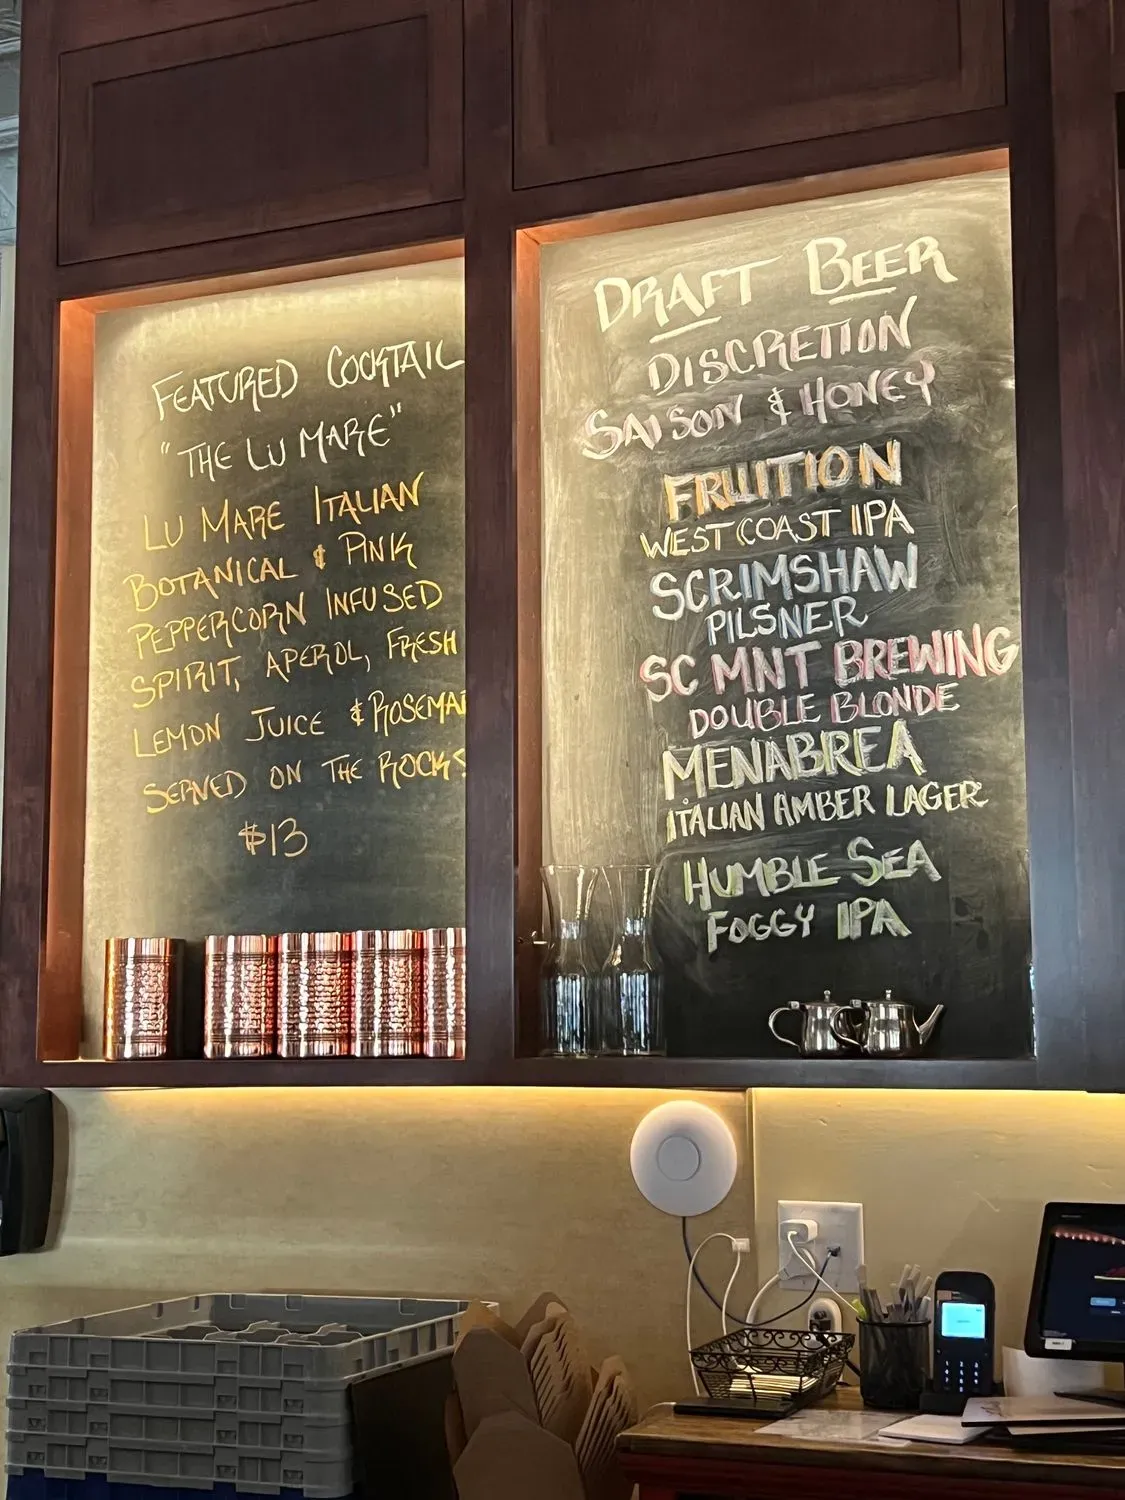 FEATURED COCKTAIL
"THE LU MARE"
LU MARE ITALIAN
BOTANICAL & PINK
PEPPERCORN INFUSED
SPIRIT, APEROL, FRESH
LEMON JUICE & ROSEMAR
SERVED ON THE ROCKS
$13
DRAFT BEER
DISCRETION
SAISON & HONEY
FRUITION
WEST COAST IPA
SCRIMSHAW
PILSNER
SC MNT BREWING
DOUBLE BLONDE
MENABREA
ITALIAN AMBER LAGER
HUMBLE SEA
FOGGY IPA